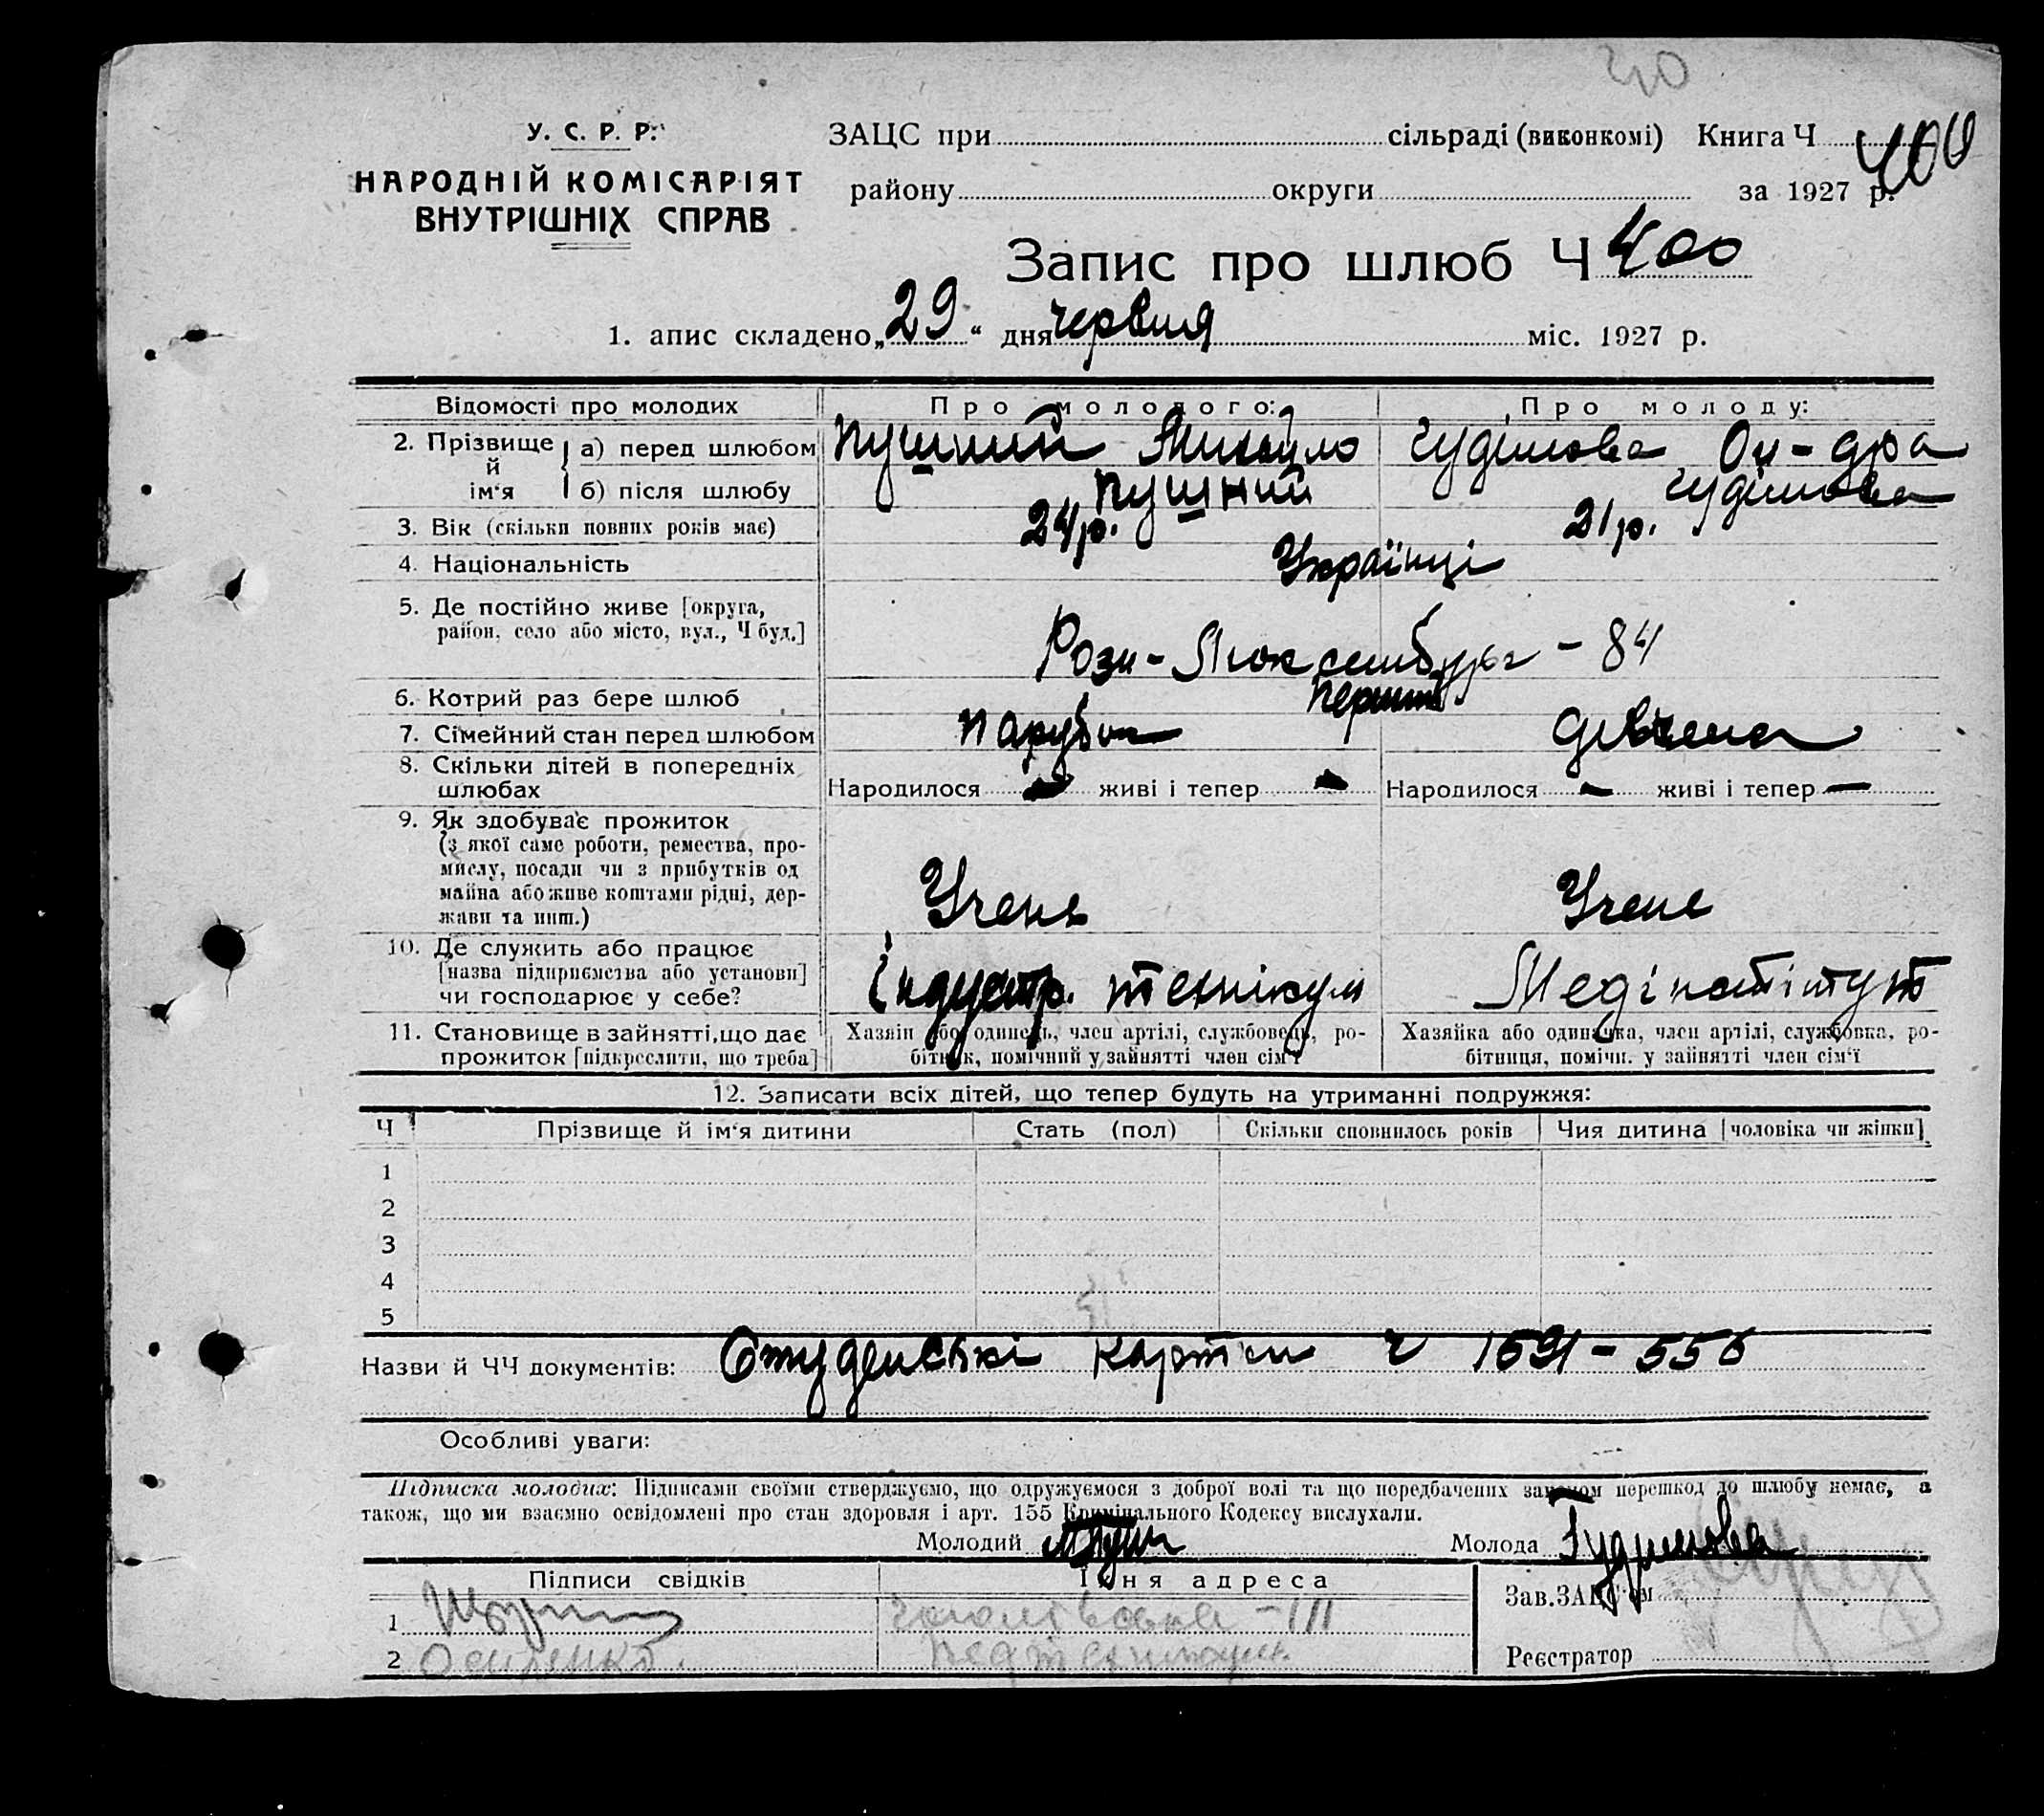 40
У. С. Р. Р.
НАРОДНІЙ КОМІСАРІЯТ
ВНУТРІШНІХ СПРАВ
ЗАЦС при сільраді (виконкомі) Книга Ч 400
району округи за 1927 р.
Запис про шлюб Ч 400
1. апис складено „29“ дня червня міс. 1927 р.
Відомості про молодих Про молодого: Про молоду:
2. Прізвище й ім‘я а) перед шлюбом Пушний Михайло Гудімова Ол-дра
б) після шлюбу Пушний Гудімова
3. Вік (скільки повних років має) 24 р. 21 р.
4. Національність Українці
5. Де постійно живе [округа,
район, село або місто, вул., Ч буд.]
Рози-Люксембург - 84
6. Котрий раз бере шлюб Перший
7. Сімейний стан перед шлюбом парубок дівчина
8. Скільки дітей в попередніх
шлюбах Народилося — живі і тепер — Народилося — живі і тепер —
9. Як здобуває прожиток
(з якої саме роботи, ремества, про-
мислу, посади чи з прибутків од
майна або живе коштами рідні, дер-
жави та инш.)
Учень Учене
10. Де служить або працює
[назва підприємства або установи]
чи господарює у себе?
індустр. технікум Медінстітут
11. Становище в зайнятті, що дає
прожиток [підкреслити, що треба]
Хазяїн або одинець, член артілі, службовець, ро-
бітник, помічний у зайнятті член сім‘ї
Хазяйка або одиначка, член артілі, службовка, ро-
бітниця, помічн. у зайнятті член сім‘ї
12. Записати всіх дітей, що тепер будуть на утриманні подружжя:
Ч Прізвище й ім‘я дитини Стать (пол) Скільки сповнилось років Чия дитина [чоловіка чи жінки]
1
2
3
4
5
Назви й ЧЧ документів: Студенські картки ч 1691 - 556
Особливі уваги:
Підписка молодих: Підписами своїми стверджуємо, що одружуємося з доброї волі та що передбачених законом перешкод до шлюбу немає, а
також, що ми взаємно освідомлені про стан здоровля і арт. 155 Кримінального Кодексу вислухали.
Молодий Молода Гудимова
Підписи свідків Їхня адреса
Зав. ЗАЦС‘ом
1
2 Осипенко.
Реєстратор